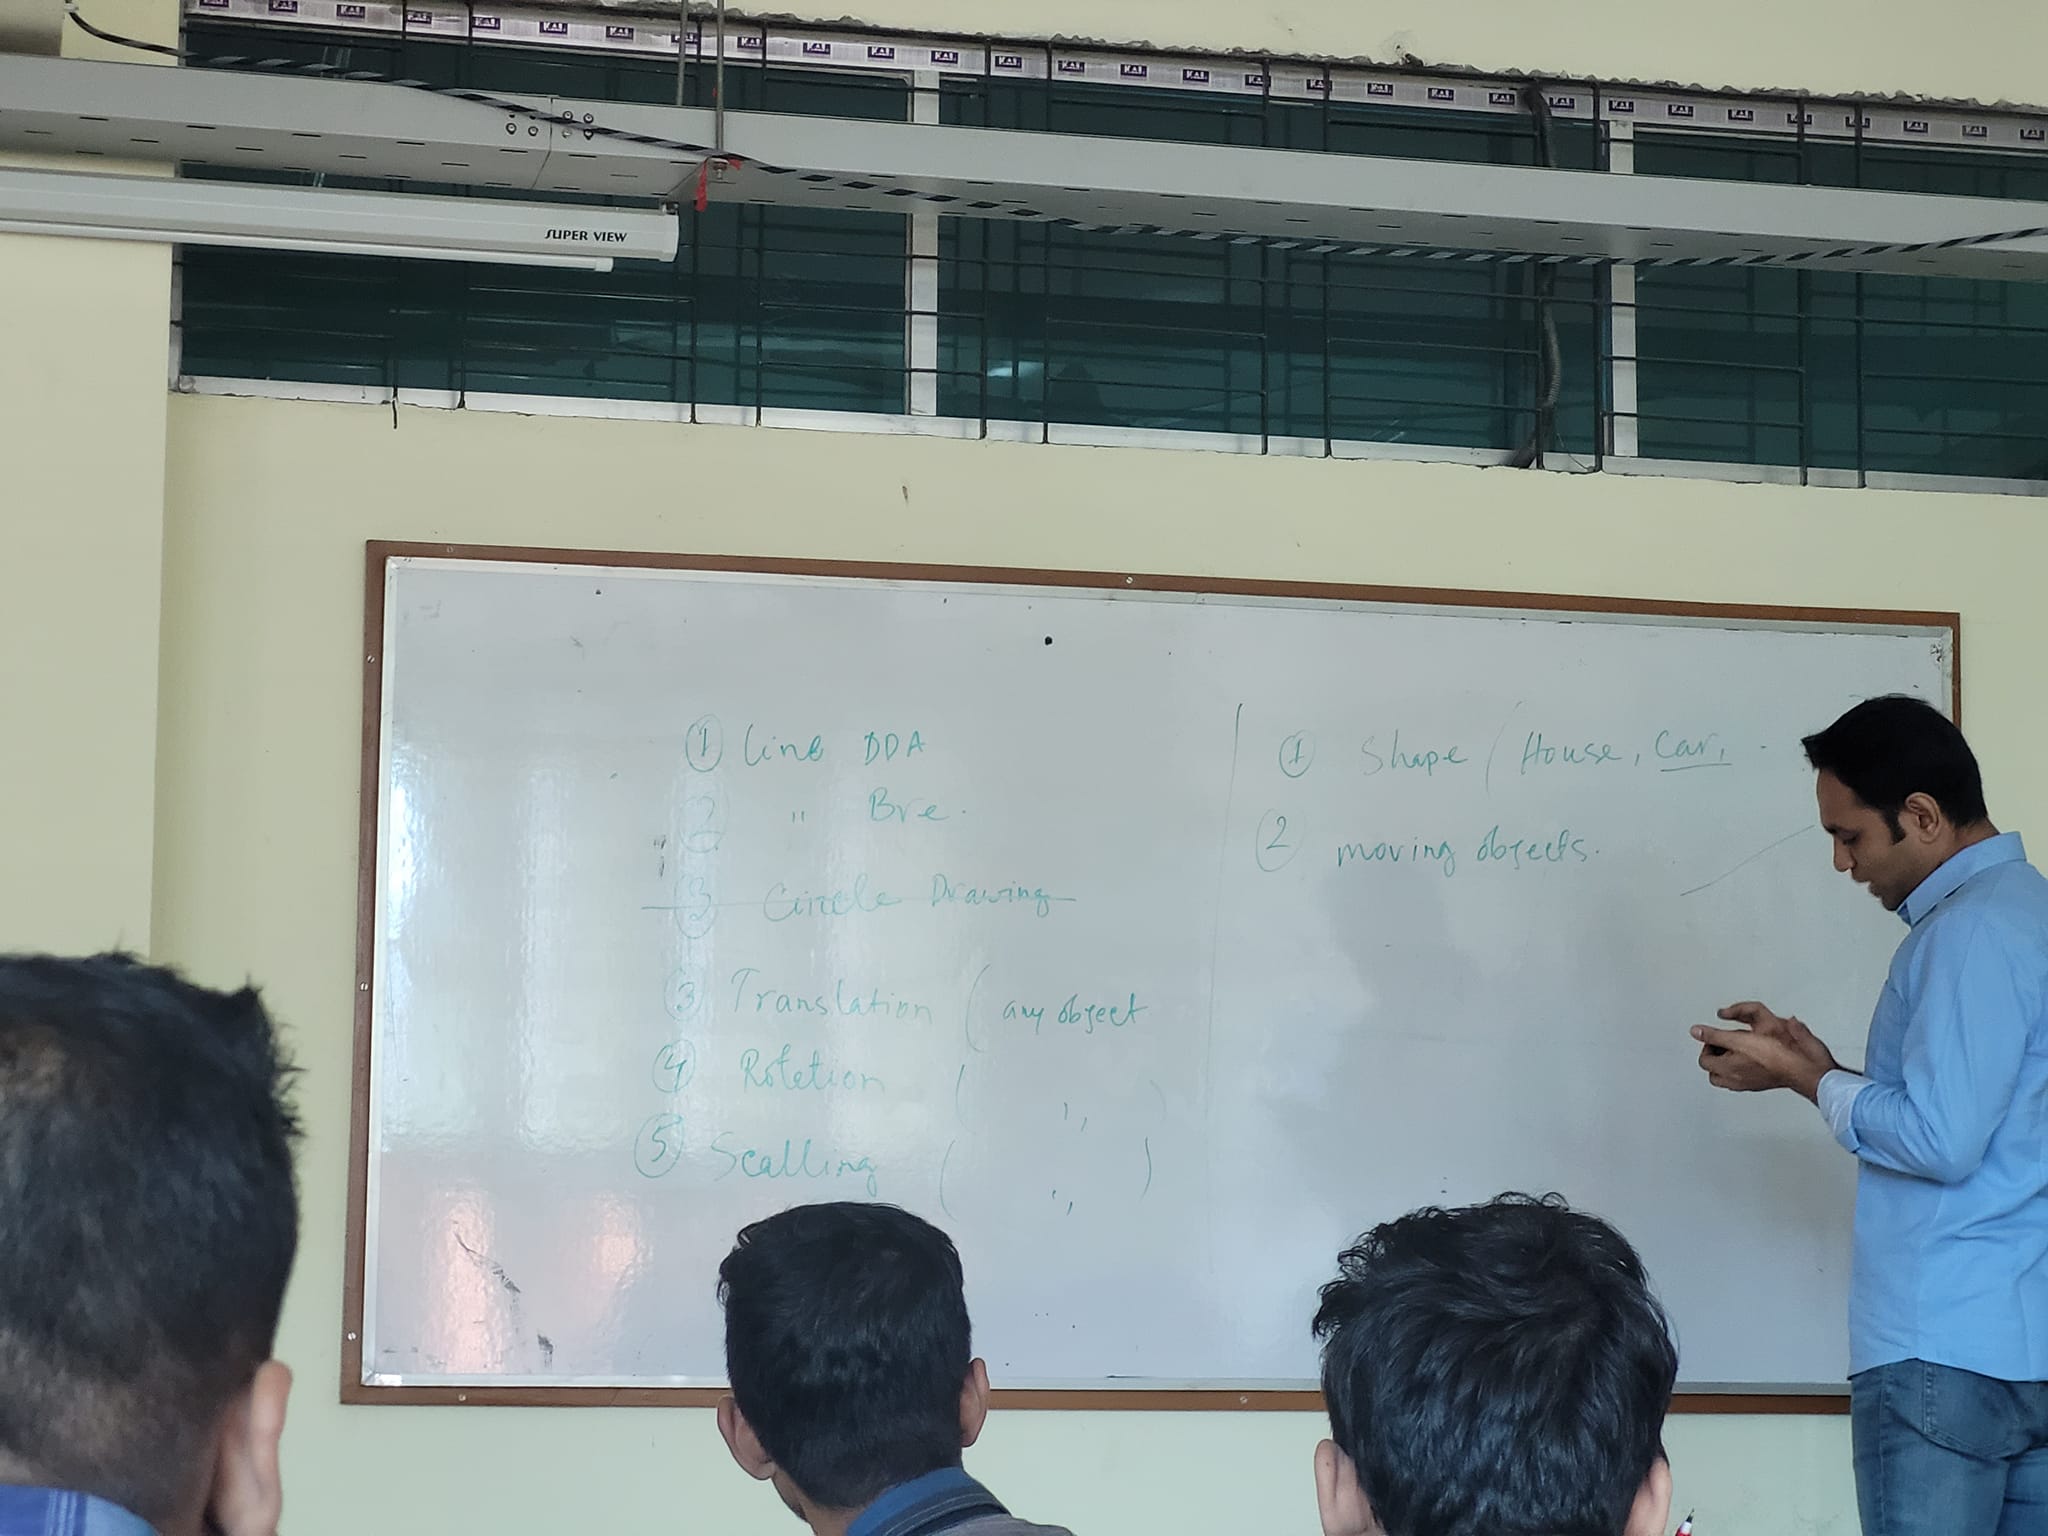 SUPER VIEW
① Line DDA
② " Bre.
③ Circle Drawing
③ Translation ( any object
④ Rotetion ( " )
⑤ Scalling ( " )
① Shape ( House, Car, .
② moving objects.